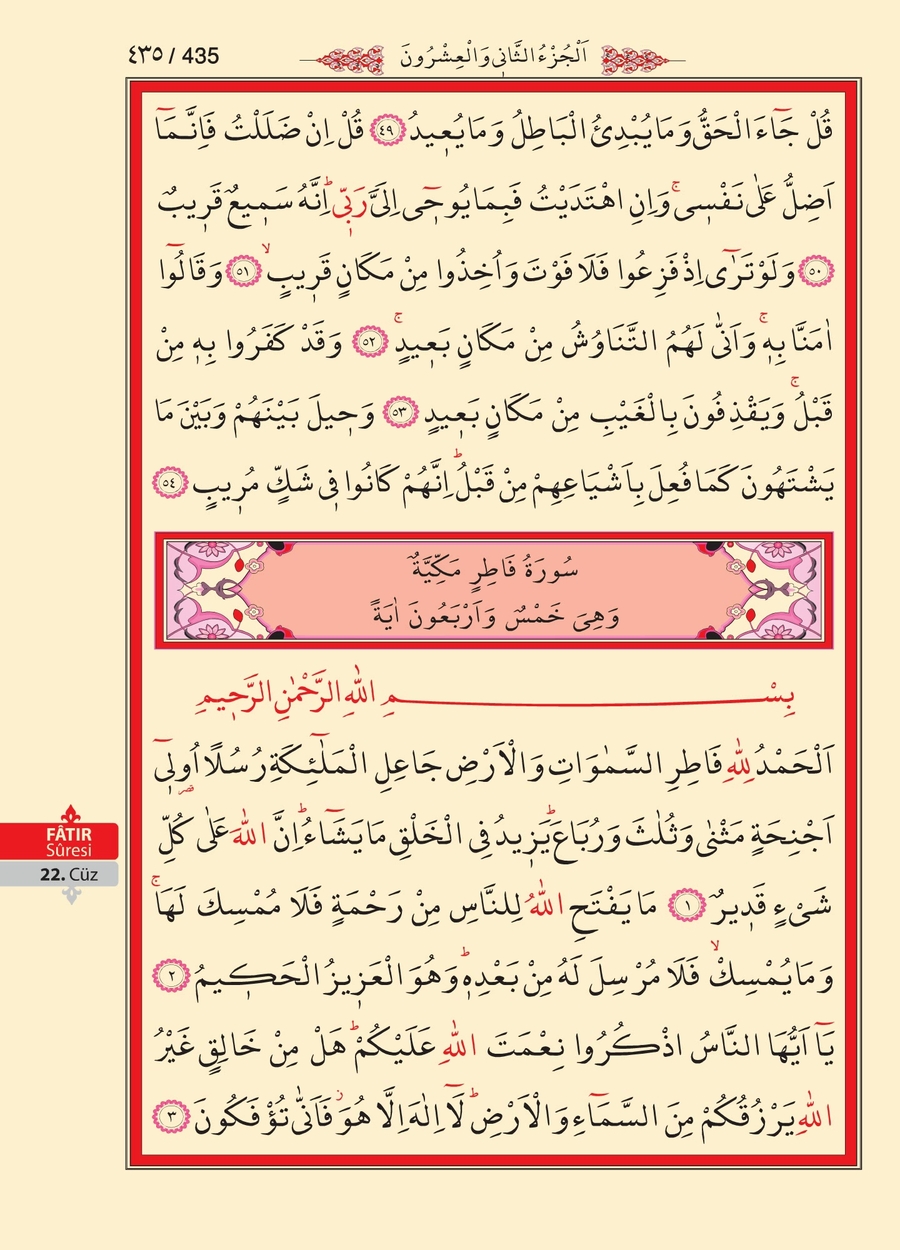 اَلْجُزْءُ الثَّانٖي وَالْعِشْرُونَ
٤٣٥ / 435
قُلْ جَٓاءَ الْحَقُّ وَمَا يُبْدِئُ الْبَاطِلُ وَمَا يُعٖيدُ ﴿٤٩﴾ قُلْ اِنْ ضَلَلْتُ فَاِنَّـمَٓا
اَضِلُّ عَلٰى نَفْسٖيۚ وَاِنِ اهْتَدَيْتُ فَبِمَا يُوحٖٓى اِلَىَّ رَبّٖيؕ اِنَّهُ سَمٖيعٌ قَرٖيبٌ
﴿٥٠﴾ وَلَوْ تَرٰٓى اِذْ فَزِعُوا فَلَا فَوْتَ وَاُخِذُوا مِنْ مَكَانٍ قَرٖيبٍۙ ﴿٥١﴾ وَقَالُٓوا
اٰمَنَّا بِهٖۚ وَاَنّٰى لَهُمُ التَّنَاوُشُ مِنْ مَكَانٍ بَعٖيدٍۚ ﴿٥٢﴾ وَقَدْ كَفَرُوا بِهٖ مِنْ
قَبْلُۚ وَيَقْذِفُونَ بِالْغَيْبِ مِنْ مَكَانٍ بَعٖيدٍ ﴿٥٣﴾ وَحٖيلَ بَيْنَهُمْ وَبَيْنَ مَا
يَشْتَهُونَ كَمَا فُعِلَ بِاَشْيَاعِهِمْ مِنْ قَبْلُؕ اِنَّهُمْ كَانُوا فٖي شَكٍّ مُرٖيبٍ ﴿٥٤﴾
سُورَةُ فَاطِرٍ مَكِّيَّةٌ
وَهِىَ خَمْسٌ وَاَرْبَعُونَ اٰيَةً
بِسْمِ اللّٰهِ الرَّحْمٰنِ الرَّحٖيمِ
اَلْحَمْدُ لِلّٰهِ فَاطِرِ السَّمٰوَاتِ وَالْاَرْضِ جَاعِلِ الْمَلٰٓئِكَةِ رُسُلًا اُولٖٓي
اَجْنِحَةٍ مَثْنٰى وَثُلٰثَ وَرُبَاعَؕ يَزٖيدُ فِى الْخَلْقِ مَا يَشَٓاءُؕ اِنَّ اللّٰهَ عَلٰى كُلِّ
شَىْءٍ قَدٖيرٌ ﴿١﴾ مَا يَفْتَحِ اللّٰهُ لِلنَّاسِ مِنْ رَحْمَةٍ فَلَا مُمْسِكَ لَهَاۚ
وَمَا يُمْسِكْۙ فَلَا مُرْسِلَ لَهُ مِنْ بَعْدِهٖؕ وَهُوَ الْعَزٖيزُ الْحَكٖيمُ ﴿٢﴾
يَٓا اَيُّهَا النَّاسُ اذْكُرُوا نِعْمَتَ اللّٰهِ عَلَيْكُمْؕ هَلْ مِنْ خَالِقٍ غَيْرُ
اللّٰهِ يَرْزُقُكُمْ مِنَ السَّمَٓاءِ وَالْاَرْضِؕ لَٓا اِلٰهَ اِلَّا هُوَؗ فَاَنّٰى تُؤْفَكُونَ ﴿٣﴾
FÂTIR
Sûresi
22. Cüz